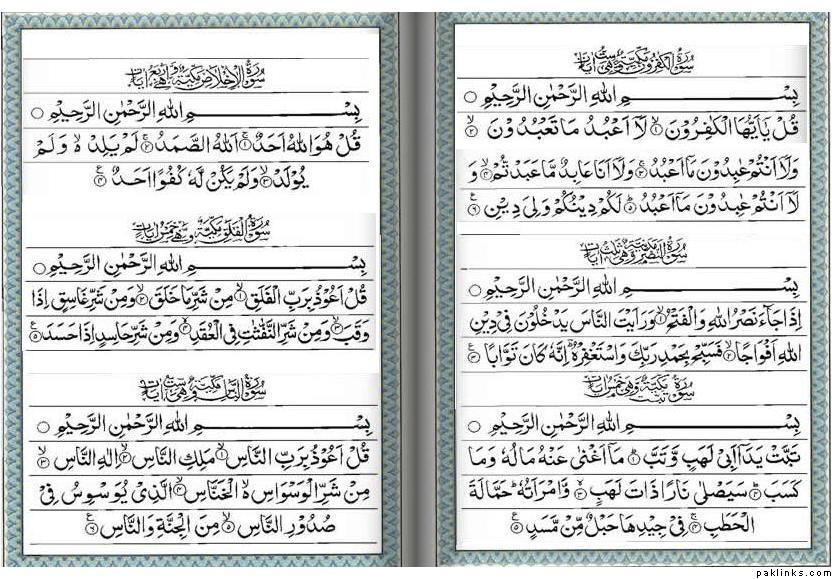 سُوْرَةُ الْكٰفِرُوْنَ مَكِّيَّةٌ وَّهِيَ سِتُّ اٰيَاتٍ
بِسْمِ اللّٰهِ الرَّحْمٰنِ الرَّحِيْمِ ○
قُلْ يٰۤاَيُّهَا الْكٰفِرُوْنَ ۝۱ لَاۤ اَعْبُدُ مَا تَعْبُدُوْنَ ۝۲
وَلَاۤ اَنْتُمْ عٰبِدُوْنَ مَاۤ اَعْبُدُ ۝۳ وَلَاۤ اَنَا عَابِدٌ مَّا عَبَدْتُّمْ ۝۴ وَ
لَاۤ اَنْتُمْ عٰبِدُوْنَ مَاۤ اَعْبُدُ ۝۵ لَكُمْ دِيْنُكُمْ وَلِيَ دِيْنِ ۝۶ ع
سُوْرَةُ النَّصْرِ مَدَنِيَّةٌ وَّهِيَ ثَلٰثُ اٰيَاتٍ
بِسْمِ اللّٰهِ الرَّحْمٰنِ الرَّحِيْمِ ○
اِذَا جَآءَ نَصْرُ اللّٰهِ وَالْفَتْحُ ۝۱ وَرَاَيْتَ النَّاسَ يَدْخُلُوْنَ فِيْ دِيْنِ
اللّٰهِ اَفْوَاجًا ۝۲ فَسَبِّحْ بِحَمْدِ رَبِّكَ وَاسْتَغْفِرْهُ ؕ اِنَّهٗ كَانَ تَوَّابًا ۝۳ ع
سُوْرَةُ تَبَّتْ مَكِّيَّةٌ وَّهِيَ خَمْسُ اٰيَاتٍ
بِسْمِ اللّٰهِ الرَّحْمٰنِ الرَّحِيْمِ ○
تَبَّتْ يَدَاۤ اَبِيْ لَهَبٍ وَّتَبَّ ۝۱ مَاۤ اَغْنٰى عَنْهُ مَالُهٗ وَمَا
كَسَبَ ۝۲ سَيَصْلٰى نَارًا ذَاتَ لَهَبٍ ۝۳ وَّامْرَاَتُهٗ ؕ حَمَّالَةَ
الْحَطَبِ ۝۴ فِيْ جِيْدِهَا حَبْلٌ مِّنْ مَّسَدٍ ۝۵ ع
سُوْرَةُ الْاِخْلَاصِ مَكِّيَّةٌ وَّهِيَ اَرْبَعُ اٰيَاتٍ
بِسْمِ اللّٰهِ الرَّحْمٰنِ الرَّحِيْمِ ○
قُلْ هُوَ اللّٰهُ اَحَدٌ ۝۱ اَللّٰهُ الصَّمَدُ ۝۲ لَمْ يَلِدْ ۙ۬ وَلَمْ
يُوْلَدْ ۝۳ وَلَمْ يَكُنْ لَّهٗ كُفُوًا اَحَدٌ ۝۴ ع
سُوْرَةُ الْفَلَقِ مَكِّيَّةٌ وَّهِيَ خَمْسُ اٰيَاتٍ
بِسْمِ اللّٰهِ الرَّحْمٰنِ الرَّحِيْمِ ○
قُلْ اَعُوْذُ بِرَبِّ الْفَلَقِ ۝۱ مِنْ شَرِّ مَا خَلَقَ ۝۲ وَمِنْ شَرِّ غَاسِقٍ اِذَا
وَقَبَ ۝۳ وَمِنْ شَرِّ النَّفّٰثٰتِ فِي الْعُقَدِ ۝۴ وَمِنْ شَرِّ حَاسِدٍ اِذَا حَسَدَ ۝۵ ع
سُوْرَةُ النَّاسِ مَكِّيَّةٌ وَّهِيَ سِتُّ اٰيَاتٍ
بِسْمِ اللّٰهِ الرَّحْمٰنِ الرَّحِيْمِ ○
قُلْ اَعُوْذُ بِرَبِّ النَّاسِ ۝۱ مَلِكِ النَّاسِ ۝۲ اِلٰهِ النَّاسِ ۝۳
مِنْ شَرِّ الْوَسْوَاسِ ۙ۬ الْخَنَّاسِ ۝۴ الَّذِيْ يُوَسْوِسُ فِيْ
صُدُوْرِ النَّاسِ ۝۵ مِنَ الْجِنَّةِ وَالنَّاسِ ۝۶ ع
paklinks.com